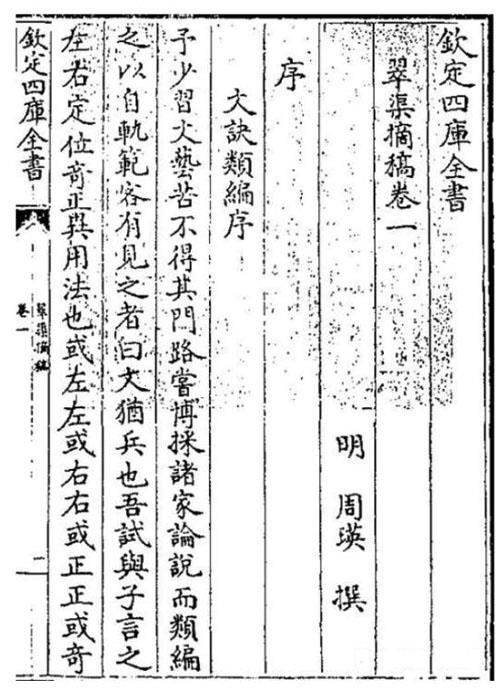 欽定四庫全書
翠渠摘稿卷一
明 周瑛 撰
序
文訣類編序
予少習文藝苦不得其門路嘗博採諸家論說而類編
之以自軌範客有見之者曰文猶兵也吾試與子言之
左右定位奇正異用法也或左左或右右或正正或奇
欽定四庫全書
翠渠摘稿
卷一
一